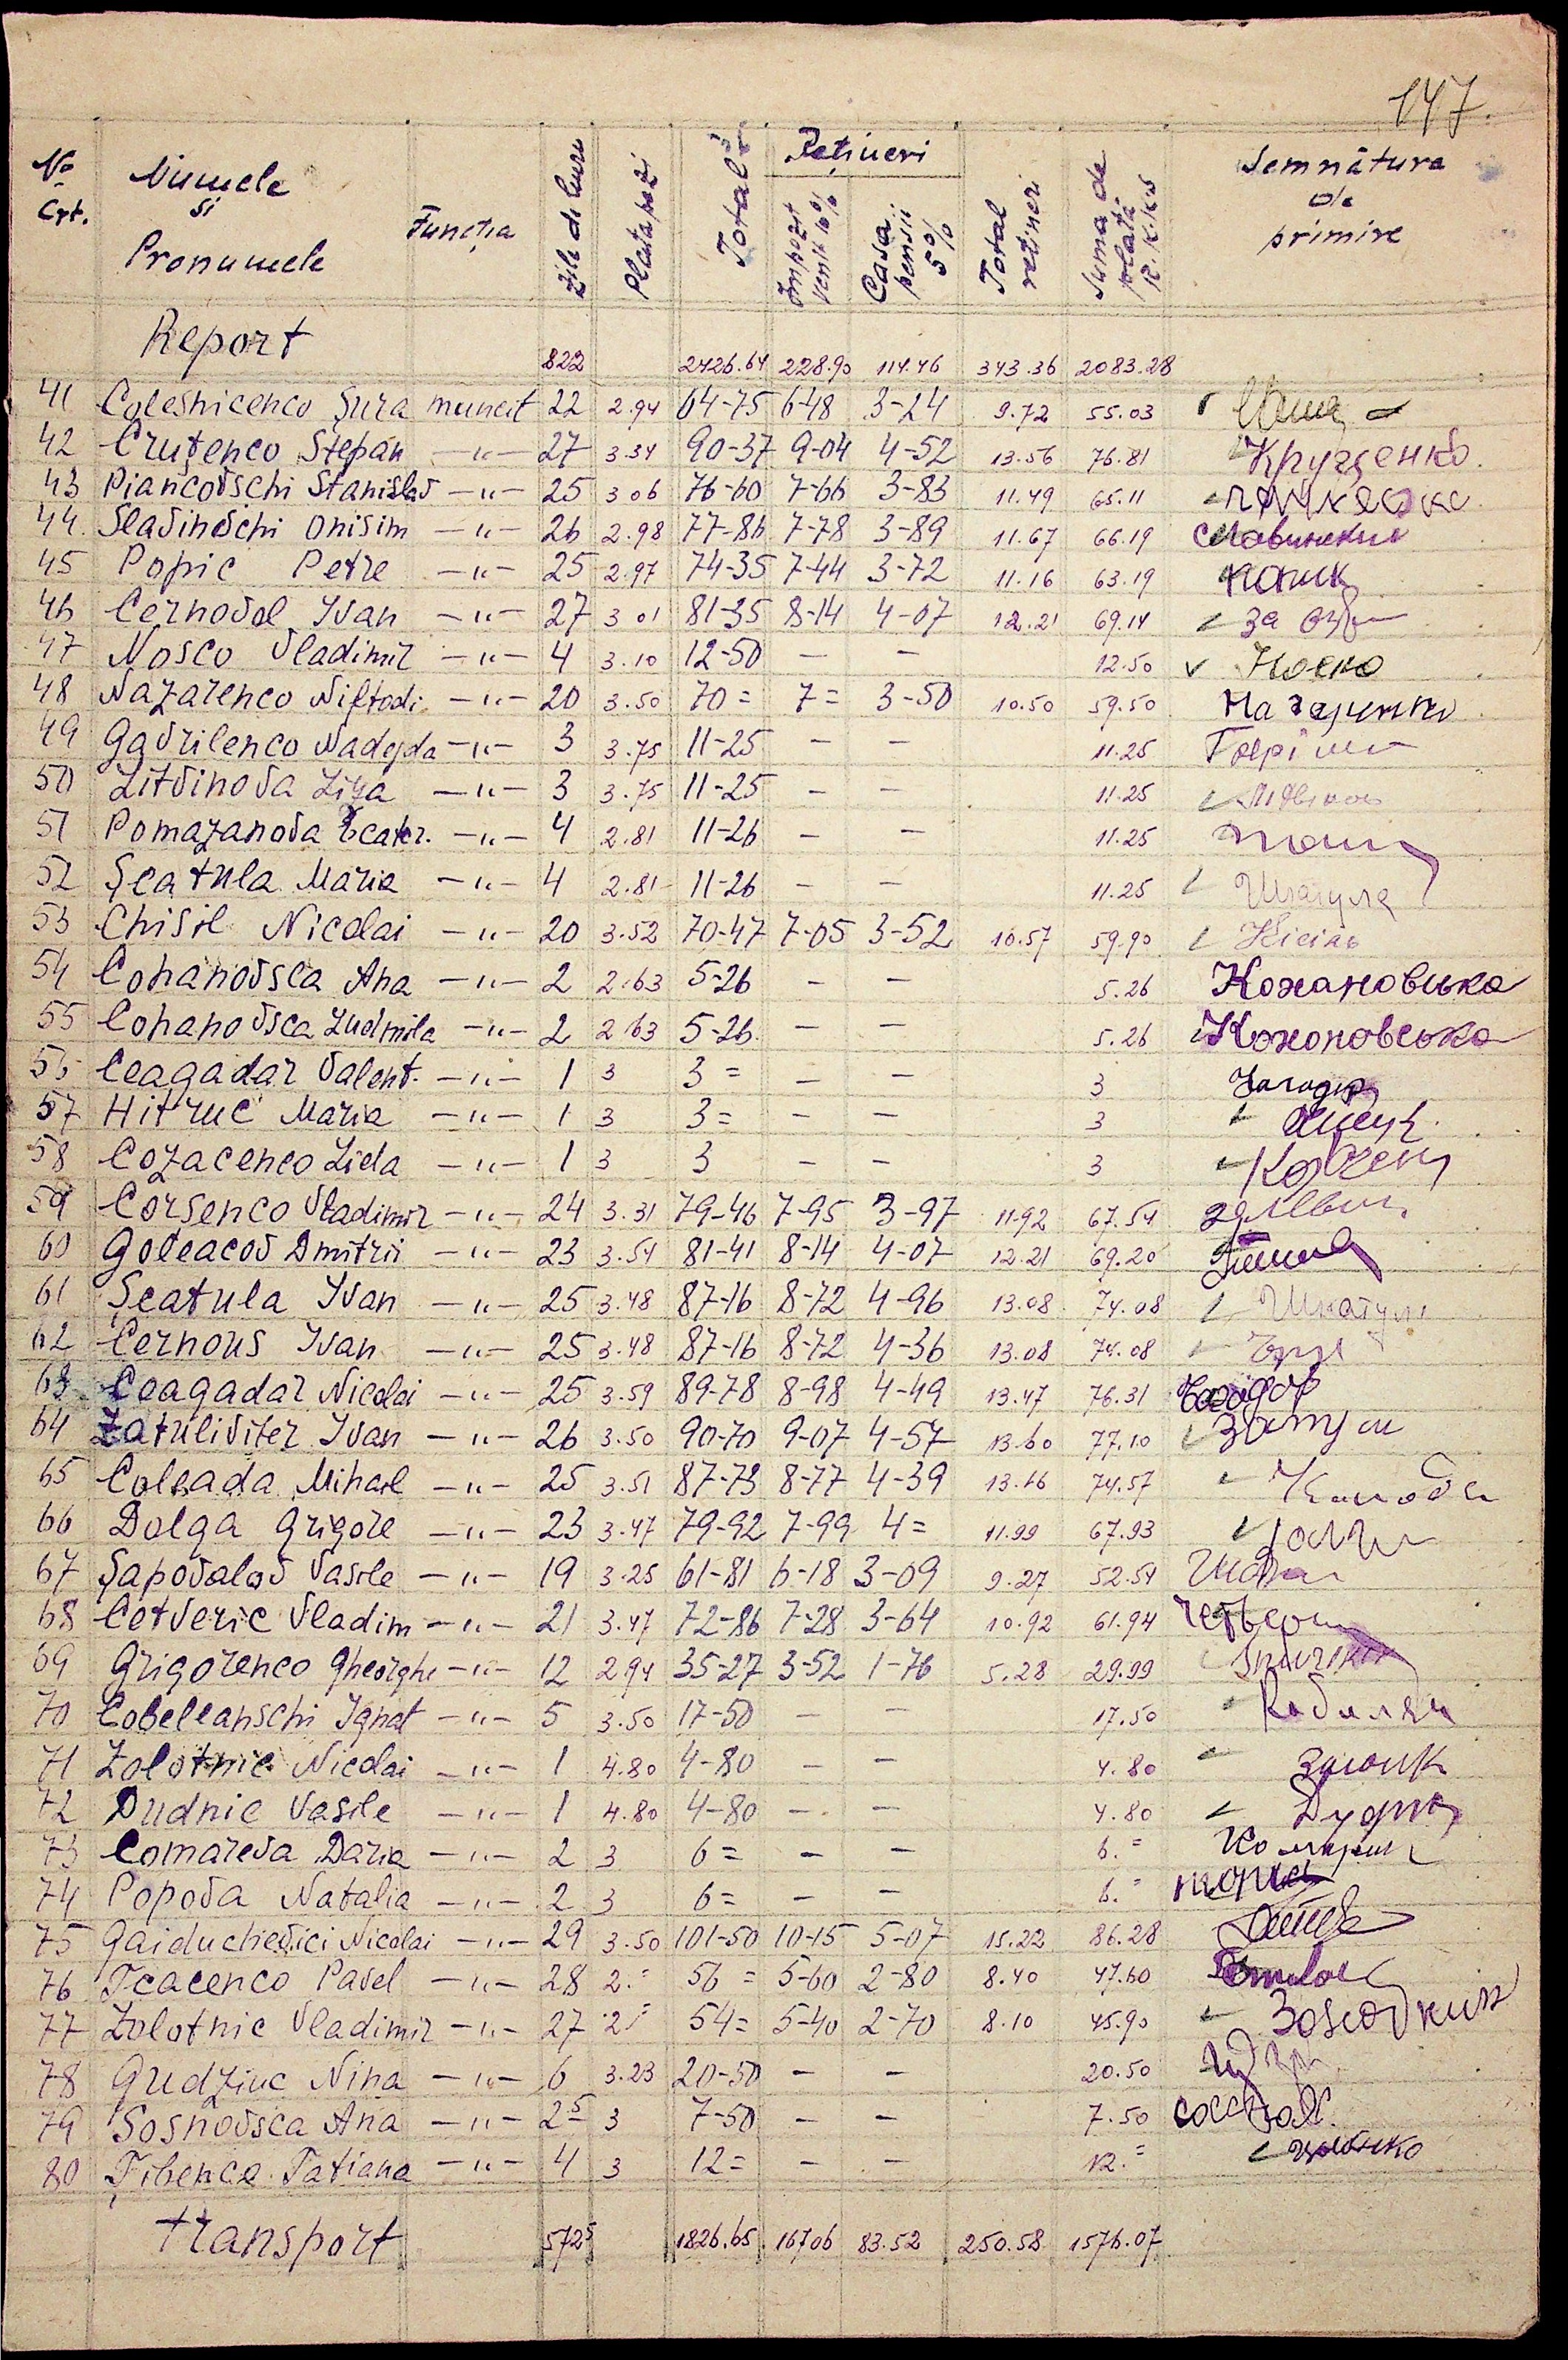 147.
No Crt.
Numele și Pronumele
Funcția
Zile de lucru
Plata pe zi
Total
Rețineri
Impozt venit 10%
Casa pensii 5%
Total rețineri
Suma de plată R.K.K.S
Semnătura de primire
Report 822 2426.64 228.90 114.46 343.36 2083.28
41 Coleshicenco Șura muncit 22 2.94 64-75 6-48 3-24 9.72 55.03
42 Cruțenco Stepan —"— 27 3.34 90-37 9-04 4-52 13.56 76.81 Крущенко
43 Piancovschi Stanislav —"— 25 3 06 76-60 7-66 3-83 11.49 65.11
44. Slavinschi Onisim —"— 26 2.98 77-86 7-78 3-89 11.67 66.19 Славинский
45 Popic Petre —"— 25 2.97 74-35 7-44 3-72 11.16 63.19 Папик
46 Cernovol Ivan —"— 27 3 01 81-35 8-14 4-07 12.21 69.14 За
47 Nosco Vladimir —"— 4 3.10 12-50 — — 12.50 v Носко
48 Nazarenco Niftodi —"— 20 3.50 70= 7= 3-50 10.50 59.50 Назаренко
49 Gavrilenco Nadejda —"— 3 3.75 11-25 — — 11.25
50 Litvinova Liza —"— 3 3.75 11-25 — — 11.25
51 Pomazanova Ecater. —"— 4 2.81 11-26 — — 11.25
52 Șcatula Maria —"— 4 2.81 11-26 — — 11.25 Шкатула
53 Chisil Nicolai —"— 20 3.52 70-47 7-05 3-52 10.57 59.90 Кісіль
54 Cohanovsca Ana —"— 2 2.63 5-26 — — 5.26 Кохановська
55 Cohanovsca Ludmila —"— 2 2 63 5-26. — — 5.26 Кохоновська
56 Ceagadar Valent. —"— 1 3 3= — — 3 Чагадар
57 Hitruc Maria —"— 1 3 3= — — 3
58 Cozacenco Lida —"— 1 3 3 — — 3
59 Corsenco Vladimir —"— 24 3.31 79-46 7-95 3-97 11.92 67.54
60 Goleacov Dmitrii —"— 23 3.54 81-41 8-14 4-07 12.21 69.20
61 Șcatula Ivan —"— 25 3.48 87-16 8-72 4-96 13.08 74.08 Шкатула
62 Cernous Ivan —"— 25 3.48 87-16 8-72 4-36 13.08 74.08
63 Ceagadar Nicolai —"— 25 3.59 89-78 8-98 4-49 13.47 76.31 Чагадар
64 Zatuliviter Ivan —"— 26 3.50 90-70 9-07 4-57 13.60 77.10 Затули
65 Coleada Mihail —"— 25 3.51 87-73 8-77 4-39 13.16 74.57
66 Dolga Grigore —"— 23 3.47 79-92 7-99 4= 11.99 67.93
67 Șapovalov Vasile —"— 19 3.25 61-81 6-18 3-09 9.27 52.54
68 Cetveric Vladim —"— 21 3.47 72-86 7-28 3-64 10.92 61.94
69 Grigorenco Gheorghe —"— 12 2.94 35-27 3-52 1-76 5.28 29.99
70 Cobeleanschi Ignat —"— 5 3.50 17-50 — — 17.50
71 Zolotnic Nicolai —"— 1 4.80 4-80 — — 4.80
72 Dudnic Vasile —"— 1 4.80 4-80 — — 4.80 Дудник
73 Comareva Daria —"— 2 3 6= — — 6.=
74 Popova Natalia —"— 2 3 6= — — 6.=
75 Gaiduchevici Nicolai —"— 29 3.50 101-50 10-15 5-07 15.22 86.28
76 Tcacenco Pavel —"— 28 2.= 56= 5-60 2-80 8.40 47.60
77 Zolotnic Vladimir —"— 27 2= 54= 5-40 2-70 8.10 45.90
78 Gudziuc Nina —"— 6 3.23 20-50 — — 20.50
79 Sosnovsca Ana —"— 2 5 3 7-50 — — 7.50
80 Țibenco Tatiana —"— 4 3 12= — — 12.=
Transport 572 5 1826.65 167 06 83.52 250.58 1576.07